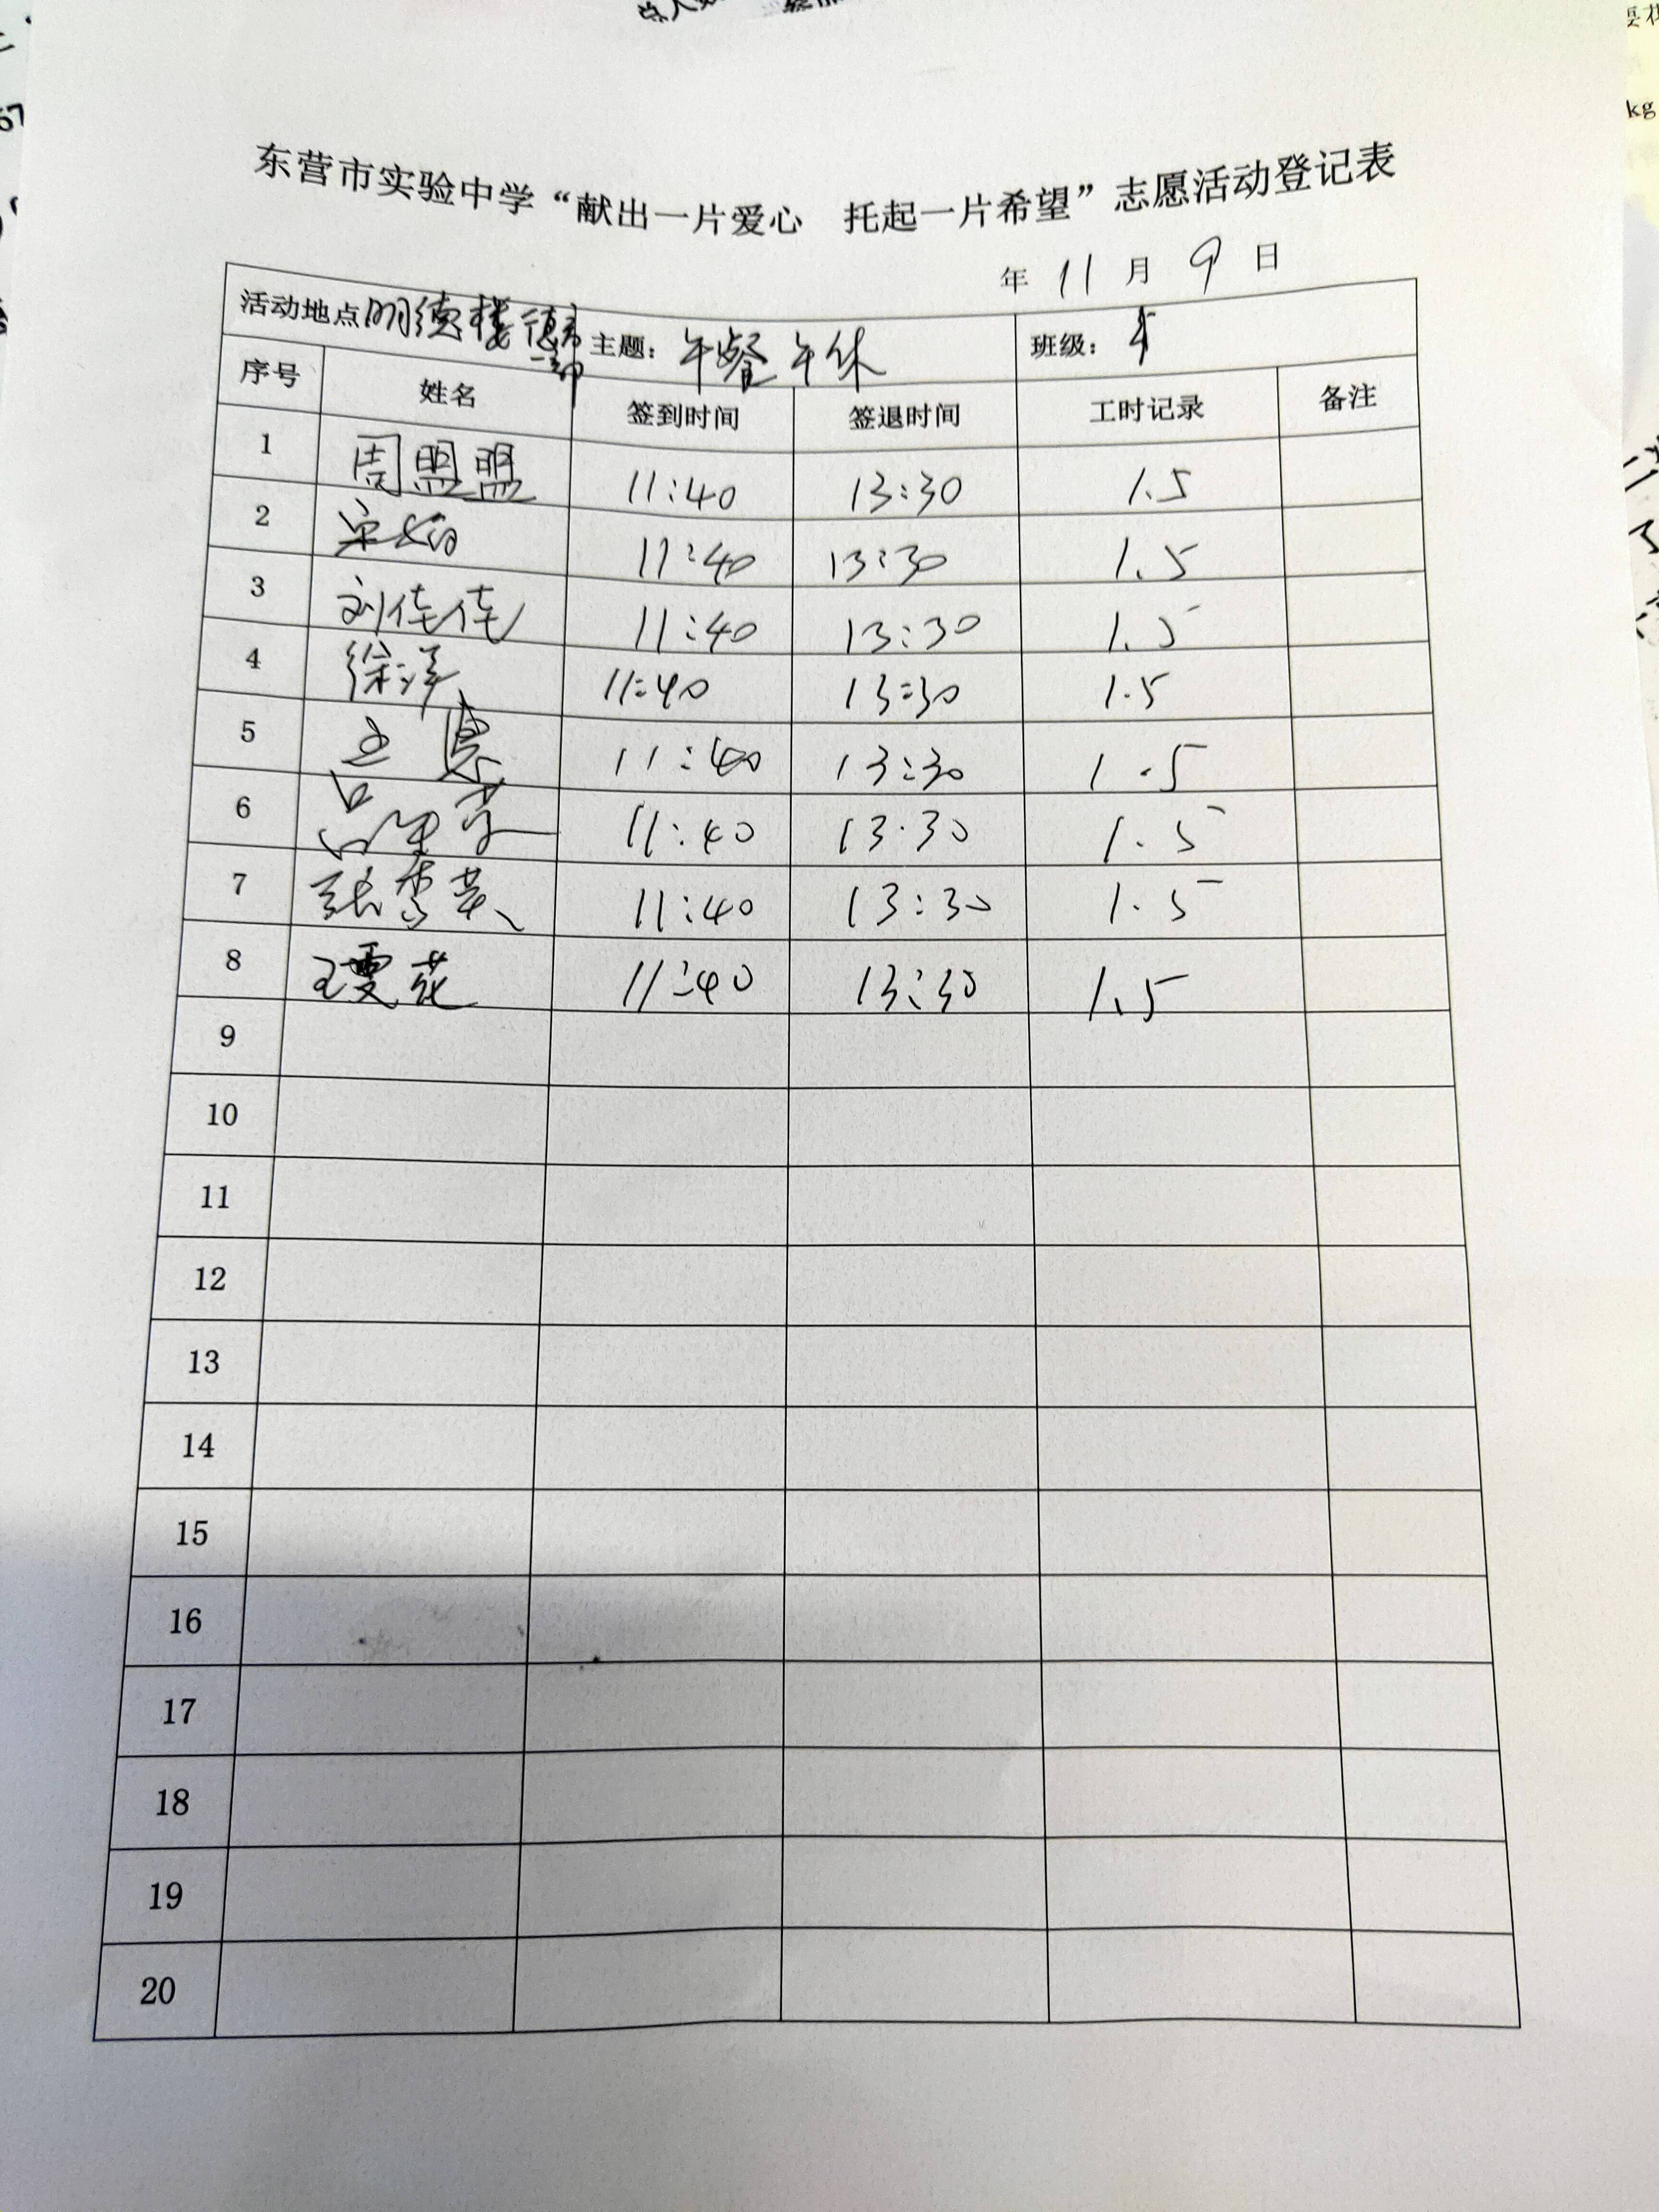 东营市实验中学“献出一片爱心 托起一片希望”志愿活动登记表
年 11 月 9 日
活动地点 明德楼德育一部 主题：午餐午休 班级：
序号 姓名 签到时间 签退时间 工时记录 备注
1 周盟盟 11:40 13:30 1.5
2 11:40 13:30 1.5
3 刘佳佳 11:40 13:30 1.5
4 徐洋 11:40 13:30 1.5
5 11:40 13:30 1.5
6 11:40 13:30 1.5
7 张秀英 11:40 13:30 1.5
8 11:40 13:30 1.5
9
10
11
12
13
14
15
16
17
18
19
20
kg